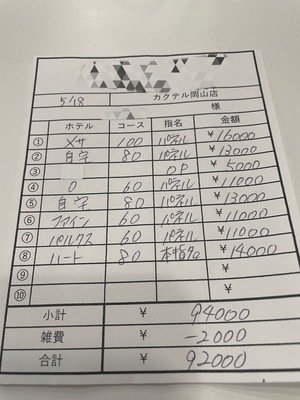 カクテル岡山店
5/18
様
ホテル コース 指名 金額
① メサ 100 パネル ¥16000
② 自宅 80 パネル ¥13000
③ OP ¥5000
④ O 60 パネル ¥11000
⑤ 自宅 80 パネル ¥13000
⑥ ファイン 60 パネル ¥11000
⑦ パルクス 60 パネル ¥11000
⑧ ハート 80 本指名 ¥14000
⑨ ¥
⑩ ¥
小計 ¥ 94000
雑費 ¥ -2000
合計 ¥ 92000